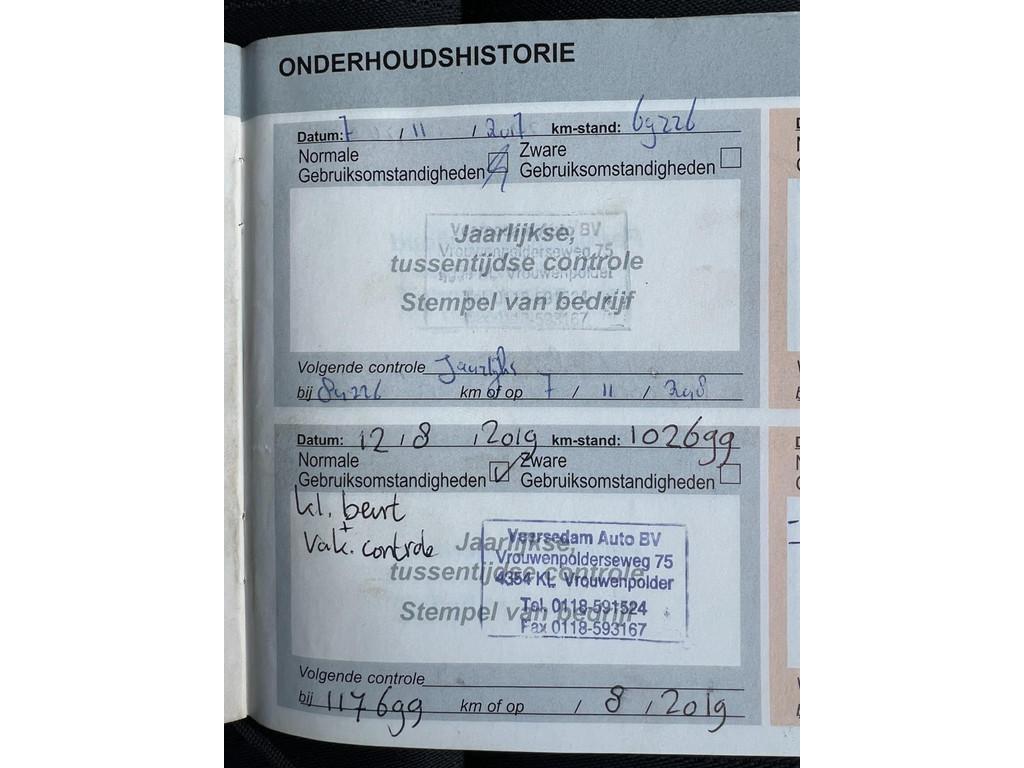 ONDERHOUDSHISTORIE
Datum: 7 / 11 / 2017 km-stand: 69226
Normale Zware
Gebruiksomstandigheden Gebruiksomstandigheden
Veersedam Auto BV
Jaarlijkse,
Vrouwenpolderseweg 75
tussentijdse controle
4354 KL Vrouwenpolder
Stempel van bedrijf
Tel. 0118-591524
Fax 0118-593167
Volgende controle Jaarlijks
bij 89226 km of op 7 / 11 / 2018
Datum: 12 / 8 / 2019 km-stand: 102699
Normale Zware
Gebruiksomstandigheden Gebruiksomstandigheden
kl. beurt
+
vak. controle
Jaarlijkse,
tussentijdse controle
Stempel van bedrijf
Veersedam Auto BV
Vrouwenpolderseweg 75
4354 KL Vrouwenpolder
Tel. 0118-591524
Fax 0118-593167
Volgende controle
bij 117699 km of op / 8 / 2019